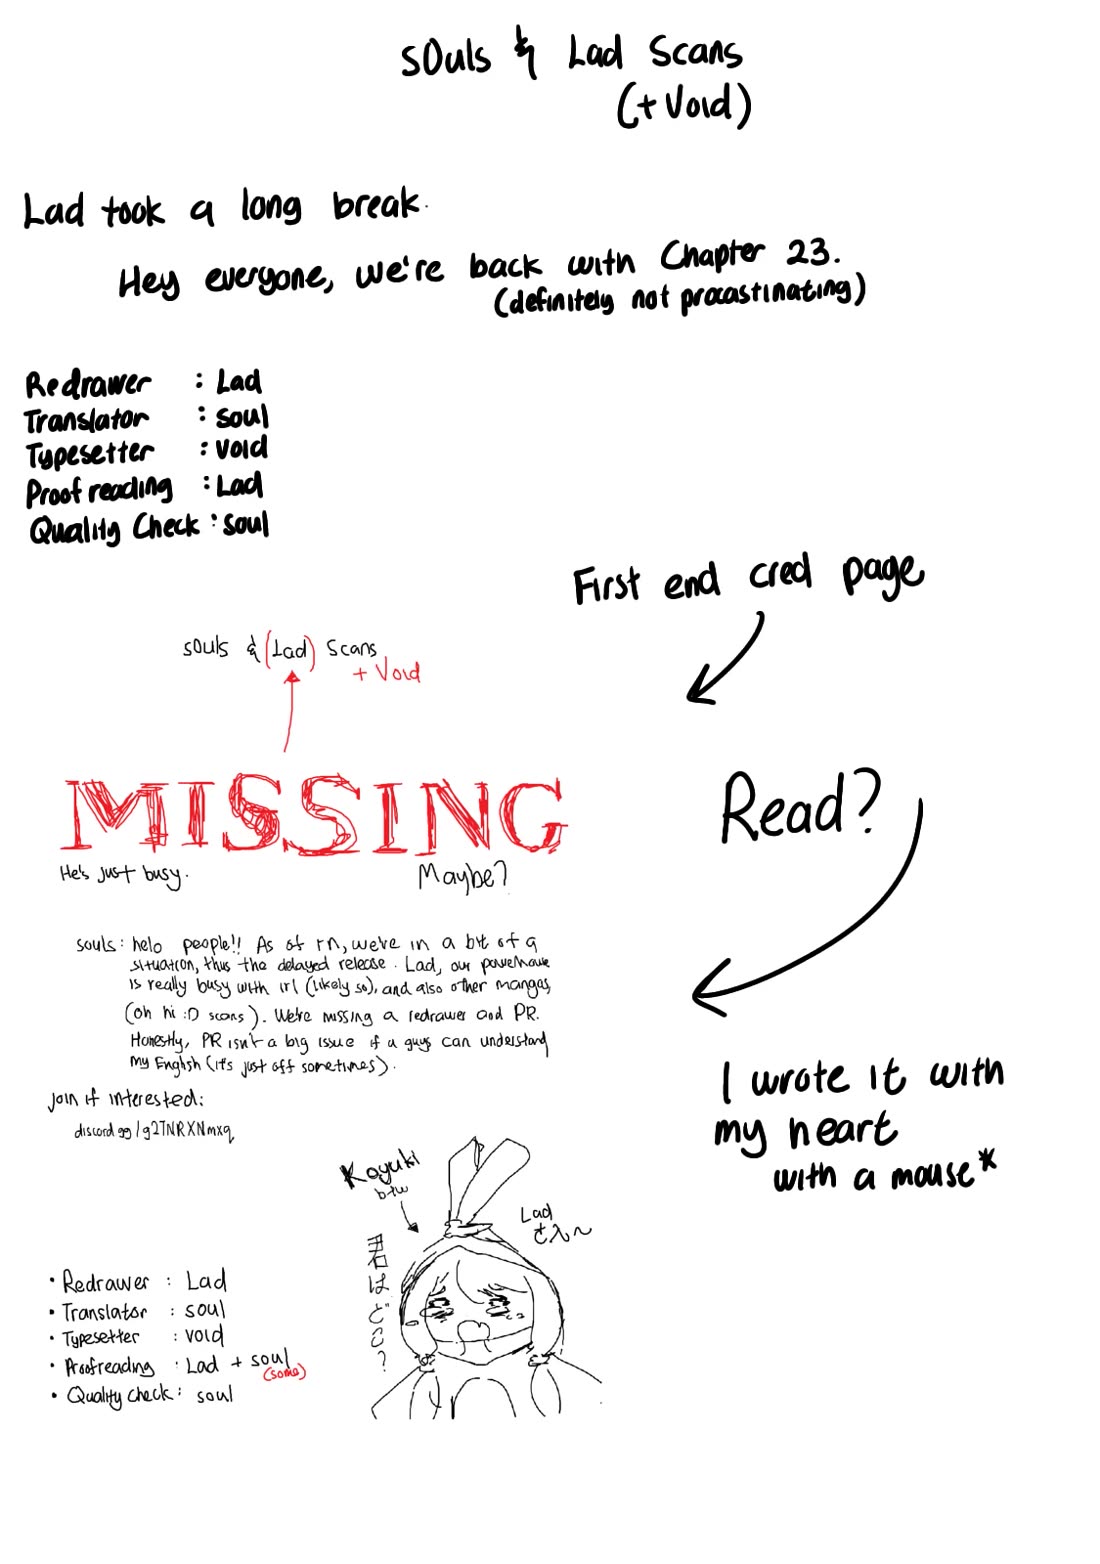 sOuls & Lad Scans
(+ Void)
Lad took a long break.
Hey everyone, we're back with Chapter 23.
(definitely not procastinating)
Redrawer : Lad
Translator : soul
Typesetter : void
Proof reading : Lad
Quality Check : soul
First end cred page
sOuls & (Lad) Scans
+ Void
MISSING
He's just busy.
Maybe?
Read?
souls : helo people!! As of rn, we're in a bit of a
situation, thus the delayed release. Lad, our powerhouse
is really busy with irl (likely so), and also other mangas,
(oh hi :D scans). We're missing a redrawer and PR.
Honestly, PR isn't a big issue if a guys can understand
my English (it's just off sometimes).
join if interested:
discord.gg/g2TNRXNmxq
I wrote it with
my heart
with a mouse*
Koyuki
btw
Lad
さん～
君はどこ?
• Redrawer : Lad
• Translator : soul
• Typesetter : void
• Proofreading : Lad + soul
(some)
• Quality check : soul